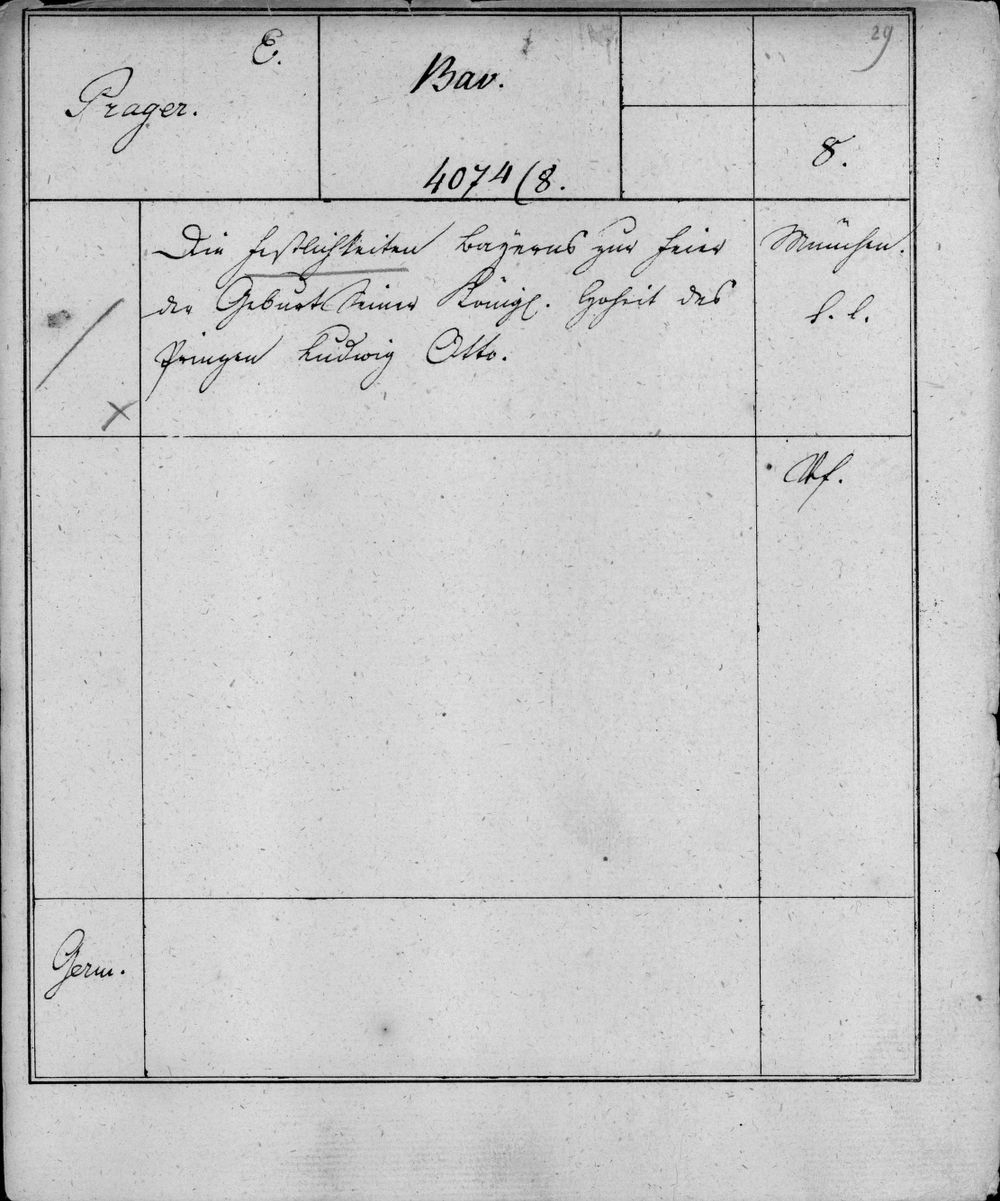 29
E.
Prager.
Bav.
4074/8.
8.
Die Festlichkeiten Bayerns zur Feier
der Geburt Seiner Königl. Hoheit des
Prinzen Ludwig Otto.
München.
s. l.
Germ.